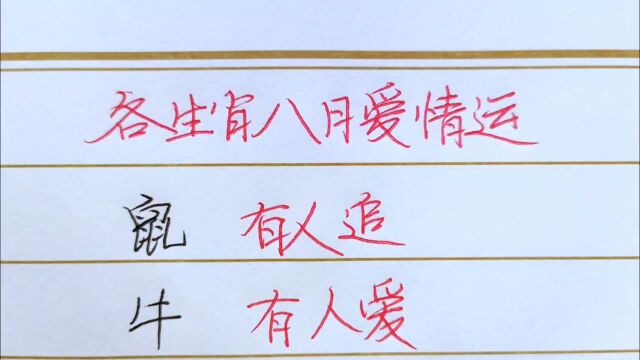 各生肖八月爱情运
鼠 有人追
牛 有人爱